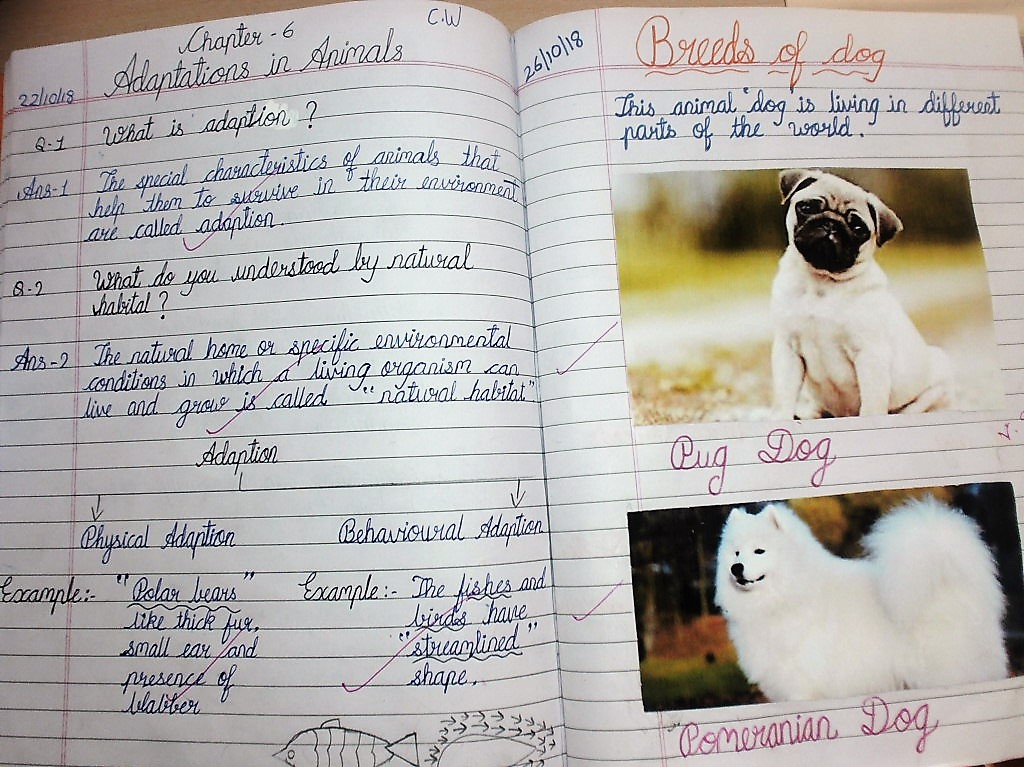 C.W
Chapter - 6
Adaptations in Animals
22/10/18
Q-1 What is adaption ?
Ans-1 The special characteristics of animals that
help them to survive in their environment
are called adaption.
Q-2 What do you understood by natural
habital ?
Ans-2 The natural home or specific environmental
conditions in which a living organism can
live and grow is called "natural habitat"
Adaption
Physical Adaption Behavioural Adaption
Example:- "Polar bears"
like thick fur,
small ear and
presence of
blabber
Example:- The fishes and
birds have
"streamlined"
shape.
26/10/18
Breeds of dog
This animal 'dog' is living in different
parts of the world.
Pug Dog
Pomeranian Dog